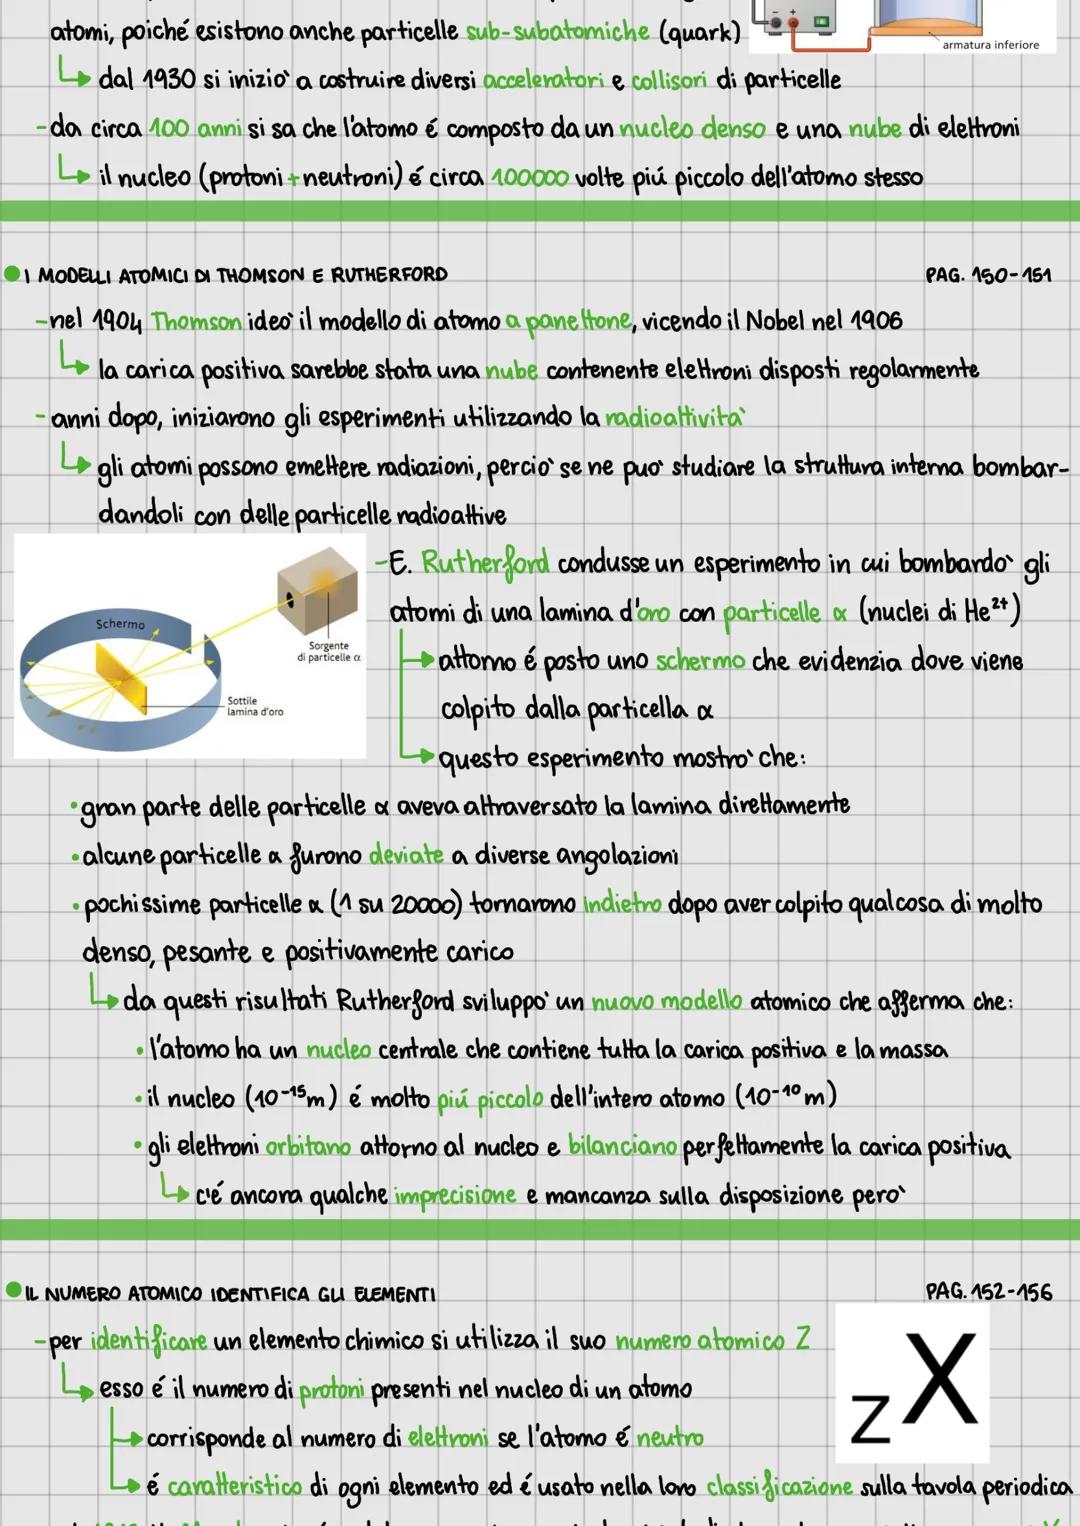 atomi, poiché esistono anche particelle sub-subatomiche (quark)
armatura inferiore
dal 1930 si iniziò a costruire diversi acceleratori e collisori di particelle
-da circa 100 anni si sa che l'atomo é composto da un nucleo denso e una nube di elettroni
il nucleo (protoni+neutroni) é circa 100000 volte piú piccolo dell'atomo stesso
I MODELLI ATOMICI DI THOMSON E RUTHERFORD PAG. 150-151
-nel 1904 Thomson ideò il modello di atomo a panettone, vicendo il Nobel nel 1906
la carica positiva sarebbe stata una nube contenente elettroni disposti regolarmente
-anni dopo, iniziarono gli esperimenti utilizzando la radioattività
gli atomi possono emettere radiazioni, perciò se ne può studiare la struttura interna bombar-
dandoli con delle particelle radioattive
Schermo
Sorgente
di particelle α
Sottile
lamina d'oro
-E. Rutherford condusse un esperimento in cui bombardò gli
atomi di una lamina d'oro con particelle α (nuclei di He²⁺)
attorno é posto uno schermo che evidenzia dove viene
colpito dalla particella α
questo esperimento mostrò che:
•gran parte delle particelle α aveva attraversato la lamina direttamente
•alcune particelle α furono deviate a diverse angolazioni
•pochissime particelle α (1 su 20000) tornarono indietro dopo aver colpito qualcosa di molto
denso, pesante e positivamente carico
da questi risultati Rutherford sviluppò un nuovo modello atomico che afferma che:
•l'atomo ha un nucleo centrale che contiene tutta la carica positiva e la massa
•il nucleo (10⁻¹⁵m) é molto piú piccolo dell'intero atomo (10⁻¹⁰m)
•gli elettroni orbitano attorno al nucleo e bilanciano perfettamente la carica positiva
c'é ancora qualche imprecisione e mancanza sulla disposizione però
IL NUMERO ATOMICO IDENTIFICA GLI ELEMENTI PAG. 152-156
-per identificare un elemento chimico si utilizza il suo numero atomico Z
Z X
esso é il numero di protoni presenti nel nucleo di un atomo
corrisponde al numero di elettroni se l'atomo é neutro
é caratteristico di ogni elemento ed é usato nella loro classificazione sulla tavola periodica